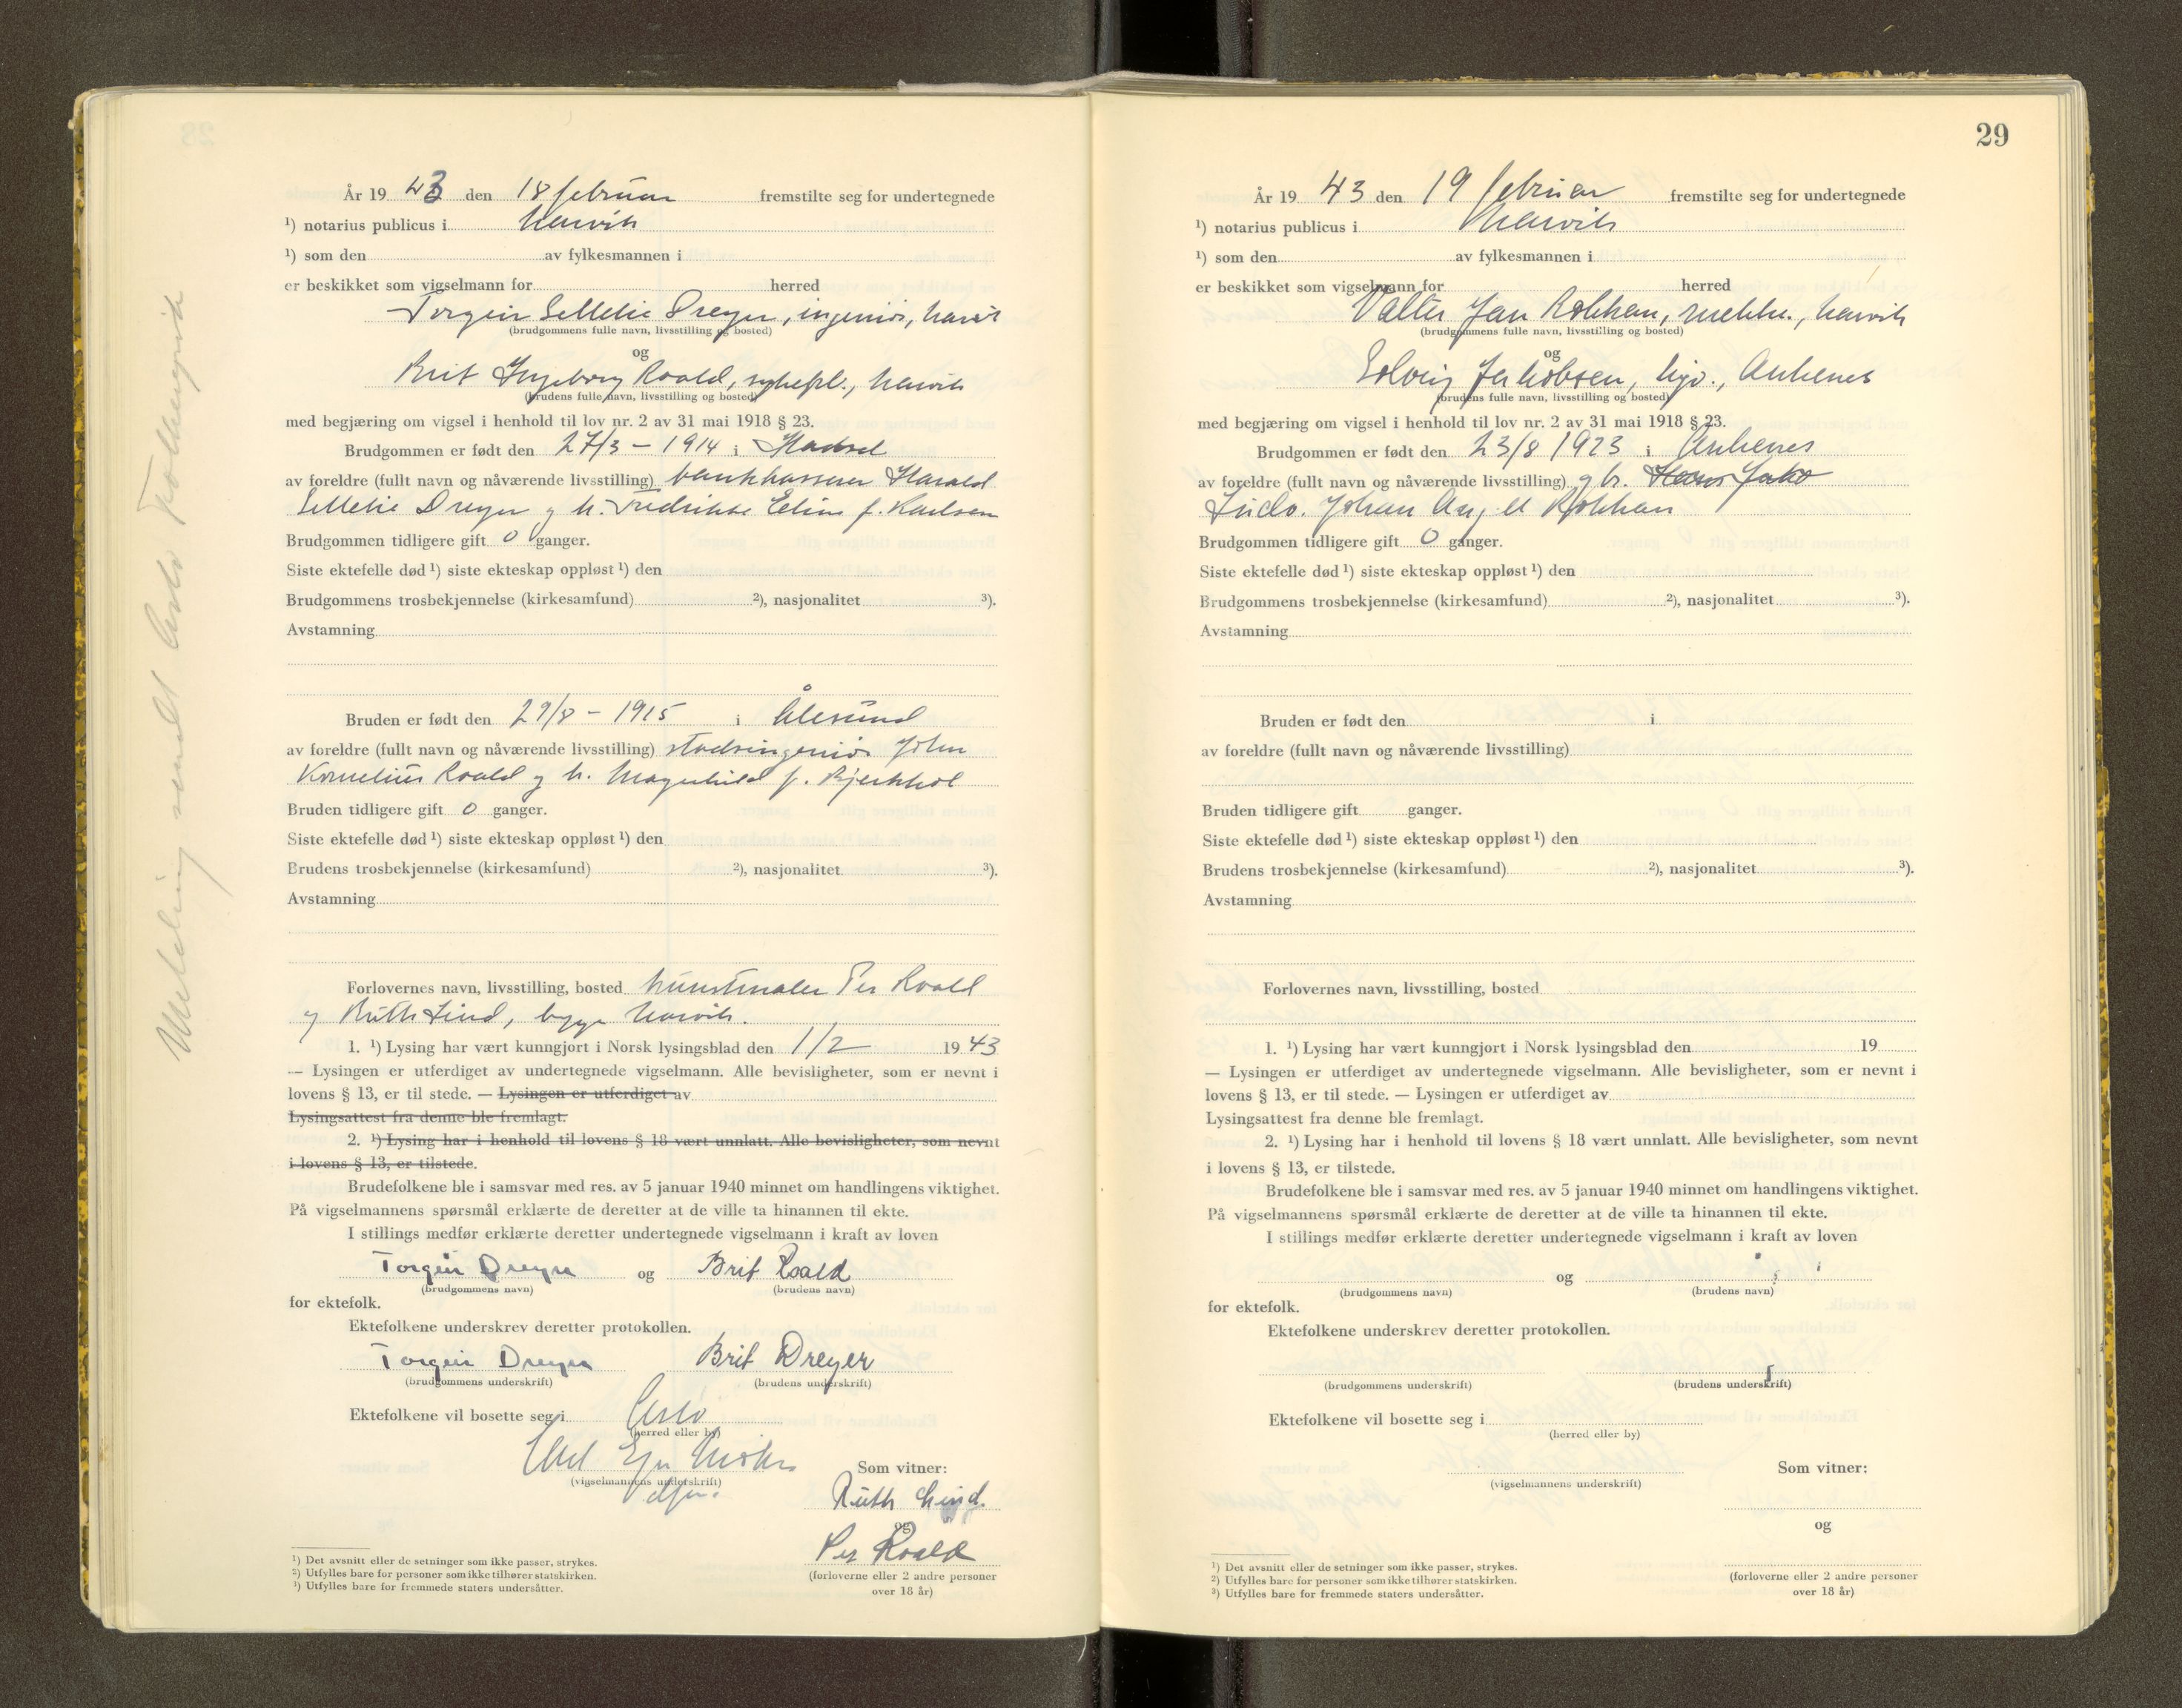 År 19 43 den 18 februar fremstilte seg for undertegnede
¹) notarius publicus i Narvik
¹) som den av fylkesmannen i
er beskikket som vigselmann for herred
Torgeir Selletie Dreyer, ingeniør, Narvik
(brudgommens fulle navn, livsstilling og bosted)
og
Brit Ingeborg Roald, sykepl., Narvik
(brudens fulle navn, livsstilling og bosted)
med begjæring om vigsel i henhold til lov nr. 2 av 31 mai 1918 § 23.
Brudgommen er født den 27/3 – 1914 i Hadsel
av foreldre (fullt navn og nåværende livsstilling) bankkasserer Harald
Selletie Dreyer og h. Fredrikke Eline f. Karlsen
Brudgommen tidligere gift 0 ganger.
Siste ektefelle død ¹) siste ekteskap oppløst ¹) den
Brudgommens trosbekjennelse (kirkesamfund) ²), nasjonalitet ³).
Avstamning
Bruden er født den 29/8 – 1915 i Ålesund
av foreldre (fullt navn og nåværende livsstilling) stadsingeniør John
Kornelius Roald og h. Magnhild f. Bjerkhol
Bruden tidligere gift 0 ganger.
Siste ektefelle død ¹) siste ekteskap oppløst ¹) den
Brudens trosbekjennelse (kirkesamfund) ²), nasjonalitet ³).
Avstamning
Forlovernes navn, livsstilling, bosted kunstmaler Per Roald
og Ruth Lind, begge Narvik.
1. ¹) Lysing har vært kunngjort i Norsk lysingsblad den 1/2 19 43
— Lysingen er utferdiget av undertegnede vigselmann. Alle bevisligheter, som er nevnt i
lovens § 13, er til stede. — Lysingen er utferdiget av
Lysingsattest fra denne ble fremlagt.
2. ¹) Lysing har i henhold til lovens § 18 vært unnlatt. Alle bevisligheter, som nevnt
i lovens § 13, er tilstede.
Brudefolkene ble i samsvar med res. av 5 januar 1940 minnet om handlingens viktighet.
På vigselmannens spørsmål erklærte de deretter at de ville ta hinannen til ekte.
I stillings medfør erklærte deretter undertegnede vigselmann i kraft av loven
Torgeir Dreyer og Brit Roald
(brudgommens navn) (brudens navn)
for ektefolk.
Ektefolkene underskrev deretter protokollen.
Torgeir Dreyer Brit Dreyer
(brudgommens underskrift) (brudens underskrift)
Ektefolkene vil bosette seg i Oslo
(herred eller by)
(vigselmannens underskrift)
Som vitner:
Ruth Lind.
og
Per Roald
(forloverne eller 2 andre personer
over 18 år)
¹) Det avsnitt eller de setninger som ikke passer, strykes.
²) Utfylles bare for personer som ikke tilhører statskirken.
³) Utfylles bare for fremmede staters undersåtter.
Melding sendt Oslo Folkeregister
29
År 19 43 den 19 februar fremstilte seg for undertegnede
¹) notarius publicus i Narvik
¹) som den av fylkesmannen i
er beskikket som vigselmann for herred
Valter Jan Rokkan, snekker., Narvik
(brudgommens fulle navn, livsstilling og bosted)
og
Solveig Jakobsen, hjv., Ankenes
(brudens fulle navn, livsstilling og bosted)
med begjæring om vigsel i henhold til lov nr. 2 av 31 mai 1918 § 23.
Brudgommen er født den 23/8 1923 i Ankenes
av foreldre (fullt navn og nåværende livsstilling) gbr. Hans Jako
Johan Rokkan
Brudgommen tidligere gift 0 ganger.
Siste ektefelle død ¹) siste ekteskap oppløst ¹) den
Brudgommens trosbekjennelse (kirkesamfund) ²), nasjonalitet ³).
Avstamning
Bruden er født den i
av foreldre (fullt navn og nåværende livsstilling)
Bruden tidligere gift ganger.
Siste ektefelle død ¹) siste ekteskap oppløst ¹) den
Brudens trosbekjennelse (kirkesamfund) ²), nasjonalitet ³).
Avstamning
Forlovernes navn, livsstilling, bosted
1. ¹) Lysing har vært kunngjort i Norsk lysingsblad den 19
— Lysingen er utferdiget av undertegnede vigselmann. Alle bevisligheter, som er nevnt i
lovens § 13, er til stede. — Lysingen er utferdiget av
Lysingsattest fra denne ble fremlagt.
2. ¹) Lysing har i henhold til lovens § 18 vært unnlatt. Alle bevisligheter, som nevnt
i lovens § 13, er tilstede.
Brudefolkene ble i samsvar med res. av 5 januar 1940 minnet om handlingens viktighet.
På vigselmannens spørsmål erklærte de deretter at de ville ta hinannen til ekte.
I stillings medfør erklærte deretter undertegnede vigselmann i kraft av loven
og
(brudgommens navn) (brudens navn)
for ektefolk.
Ektefolkene underskrev deretter protokollen.
(brudgommens underskrift) (brudens underskrift)
Ektefolkene vil bosette seg i
(herred eller by)
(vigselmannens underskrift)
Som vitner:
og
(forloverne eller 2 andre personer
over 18 år)
¹) Det avsnitt eller de setninger som ikke passer, strykes.
²) Utfylles bare for personer som ikke tilhører statskirken.
³) Utfylles bare for fremmede staters undersåtter.